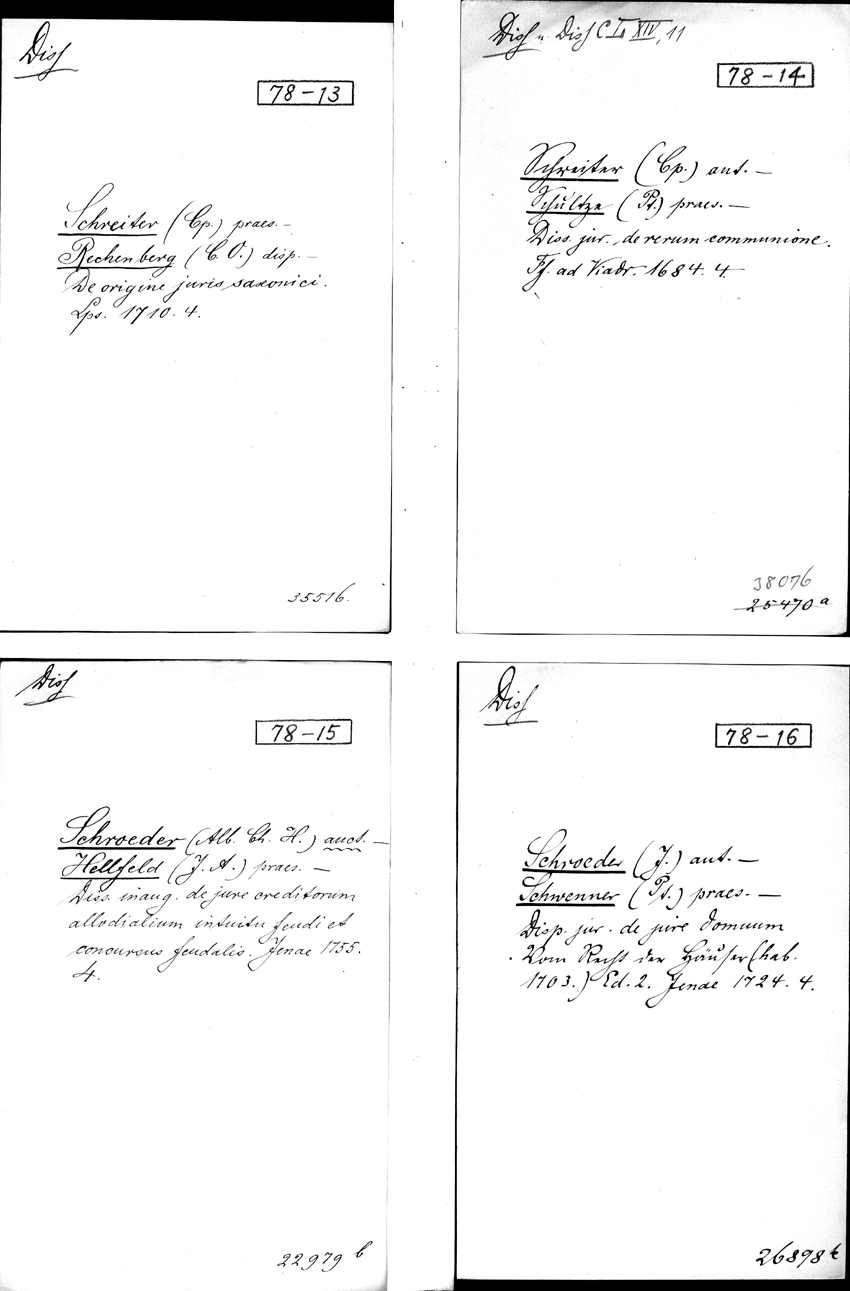 Diss
78-13
Schreiter (Cp.) praes. –
Rechenberg (C. O.) disp. –
De origine juris saxonici.
Lps. 1710. 4.
35516.
Diss u. Diss C L XIV, 11
78-14
Schreiter (Cp.) aut. –
Schultze (Pt.) praes. –
Diss. jur. de rerum communione.
Ff. ad Viadr. 1684. 4
38076
25470 a
Diss
78-15
Schroeder (Alb. Ch. H.) auct. –
Hellfeld (J. A.) praes. –
Diss. inaug. de jure creditorum
allodialium intuitu feudi et
concursus feudalis. Jenae 1755.
4.
22979 b
Diss
78-16
Schroeder (J.) aut. –
Schwenner (Pt.) praes. –
Disp. jur. de jure domuum
Vom Recht der Häuser (hab.
1703.) Ed. 2. Jenae 1724. 4.
26898 k